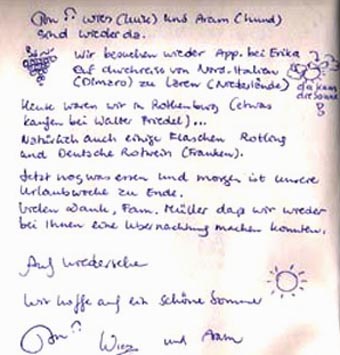 Wies (luise) und Aram (hund)
sind wieder da.
Wir besuchen wieder App. bei Erika
auf durchreise von Nord-Italien
(Dimaro) zu Laren (Niederlände)
da kam
die Sonne
Heute waren wir in Rothenburg (etwas
kaufen bei Walter Friedel)...
Natürlich auch einige Flaschen Rotling
und Deutsche Rotwein (Franken).
Jetzt nog was essen und morgen ist unsere
Urlaubswoche zu Ende.
Vielen dank, Fam. Müller daß wir wieder
bei Ihnen eine Ubernachtung machen konnten.
Auf wiedersehe
Wir hoffe auf ein schöne Sommer
Wies und Aram